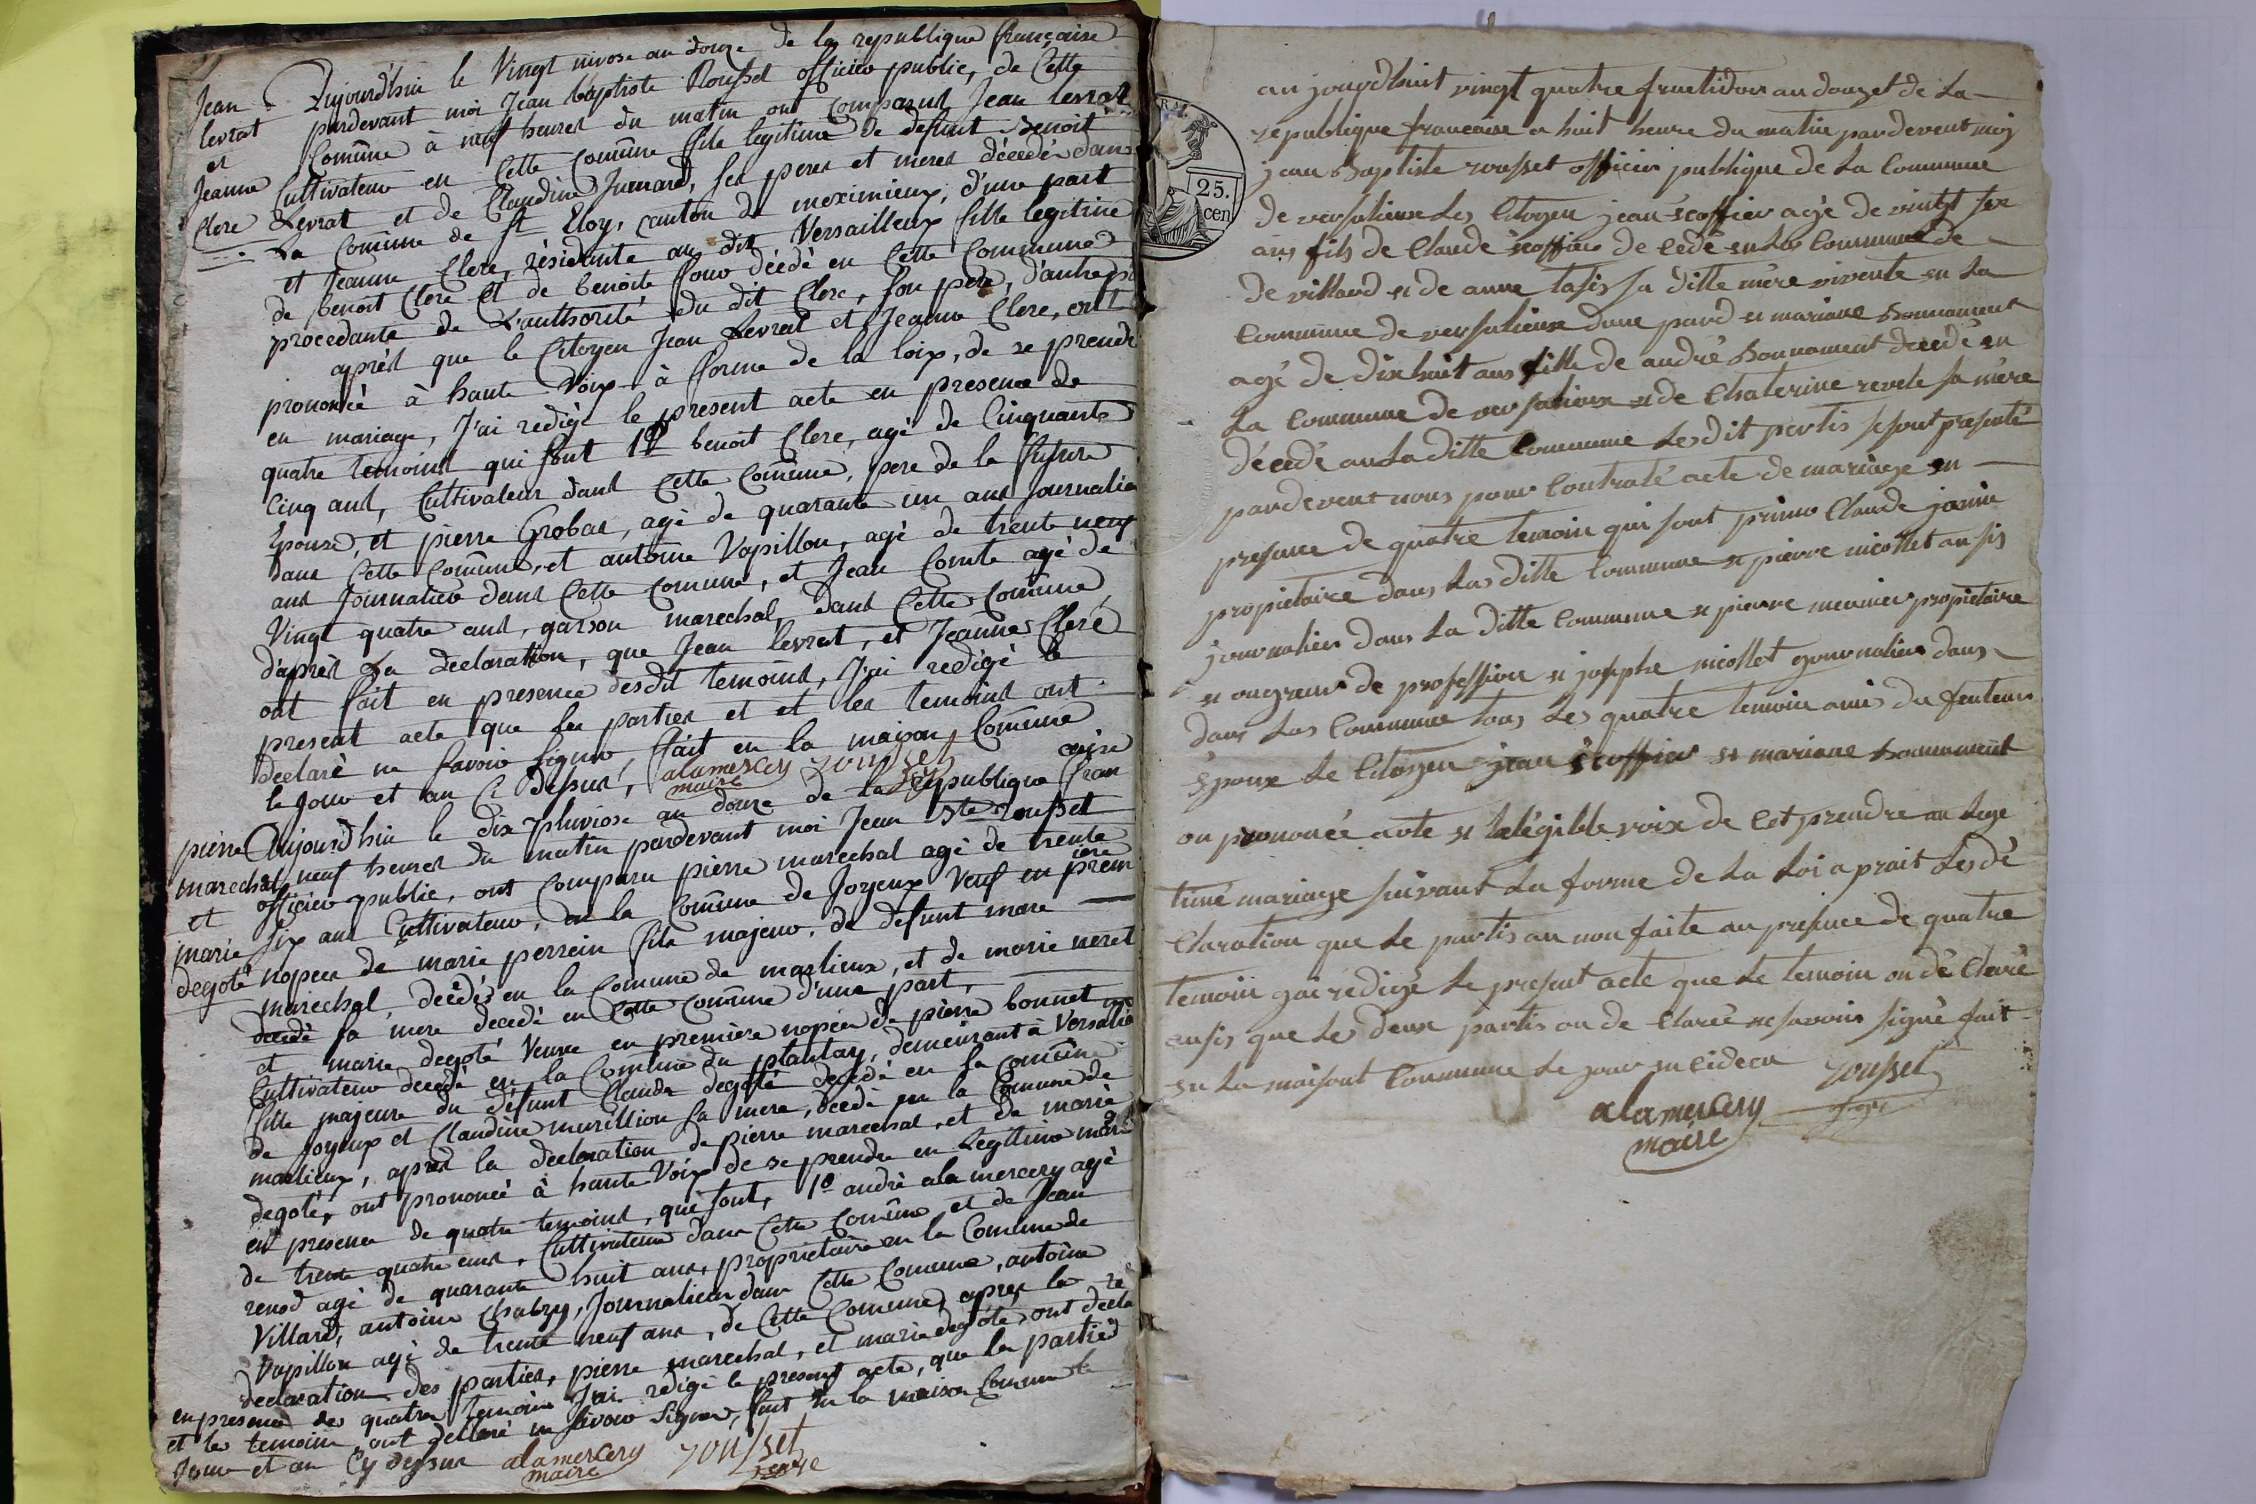 Jean
levrat
et
Jeanne
Clerc
Aujourd'hui le Vingt nivose an douze de la republique française
pardevant moi Jean baptiste Rousset officier public, de Cette
Comûne à neuf heures du matin ont Comparus Jean levrat
Cultivateur en Cette Comûne fils legitime de defunt Benoit
Levrat et de Claudine Jumard, ses peres et meres décedés dans
La Comûne de St Eloy, canton de meximieux, d'une part
et Jeanne Clerc, résidante au dit Versailleux fille legitime
de benoit Clerc et de benoite four décédé en Cette Commune
procedante de L'authorité du dit Clerc, son pere, d'autre
après que le Citoyen Jean Levrat et Jeanne Clerc, ont
prononcé à haute Voix à forme de la loix, de se prendr
en mariage, J'ai redigé le present acte en presence de
quatre temoins qui sont 1º benoit Clerc, agé de Cinquante
Cinq ans, Cultivateur dans Cette Comûne, pere de la future
Epouse, et pierre Grobas, agé de quarante un ans Journalier
dans Cette Comûne, et antoine Vapillon, agé de trente neuf
ans Journalier dans Cette Comune, et Jean Comte agé de
Vingt quatre ans, garson marechal, dans Cette Comûne,
d'après La declaration, que Jean levrat, et Jeanne Clerc
ont fait en presence desdit temoins, J'ai redigé le
present acte que les parties et et les temoins ont
declaré ne savoir signer, fait en la maison Comûne
le Jour et an Ci dessus, alamercery rousset
maire
pierre
marechal
et
marie
degoté
Aujourd'hui le dix pluviose an douze de la republique fran
caise
neuf heures du matin pardevant moi Jean Bte rousset
officier public, ont Comparu pierre marechal agé de trente
six ans Cultivateur, en la Comûne de Joyeux Veuf en prem
iere
nopces de marie perrein fils majeur, de defunt mare
marechal, decédés en la Comune de marlieux, et de marie neret
decédé sa mere decedé en Cette Comûne d'une part,
et marie degoté Veuve en première nopces de pierre bonnet
Cultivateur decedé en la Comûne du plantay, demeurant à Versalie
fille majeure du défunt Claude degoté decédé en la Comûne
de Joyeux et Claudine murillion sa mere, decedé en la Comune de
marlieux, après la declaration de pierre marechal, et de marie
degoté, ont prononcé à haute Voix de se prendre en Legitime mari
en presence de quatre temoins, qui sont, 1º andré alamercery agé
de trente quatre ans, Cultivateur dans Cette Comûne et de Jean
renod agé de quarante huit ans, proprietaire en la Comune de
Villard, antoine Chabry, Journalier dans Cette Comune, antoine
Vapillon agé de trente neuf ans, de Cette Comune, apres la
declaration des parties, pierre marechal, et marie degoté, ont decla
en presence des quatre temoins J'ai redigé le present acte, que les parties
et les temoins ont declaré ne savoir signer, fait en la maison Comune le
Jour et an Cy dessus alamercery rousset
maire
25.
cen
au jourdhuit vingt quatre fructidor an douzet de La
republique francaise a huit heure du matin pardevent moy
jean Baptiste rousset officier publique de La Commune
de versalieux Les Citoyen jean scoffier agé de vingt six
ans fils de Claude scoffier de cedé en Las Commune de
de villard et de anne tasis sa ditte mère vivente en La
Commune de versalieux dune pard et mariane Bonnament
agé de dix huit ans fille de andré Bonnament decédé en
La Commune de versalieux et de Chaterine revele sa mère
décedé an La ditte Commune Lesdit partis se sont presenté
pardevent nous pour Contraté acte de mariage en
presance de quatre temoin qui sont primo Claude janin
propietaire dans Las ditte Commune et pierre nicollet ausis
journalier dans La ditte Commune et pierre meunier propietaire
et ongreur de profession et josephe nicollet gournalier dans
dans Las Commune tous Les quatre temoin amis du fenteur
Epoux Le Citoyen jean scoffier et mariane bonnament
on prononcé aute et Lelégible voix de Cet prendre an Lege
timé mariage suivant La forme de La Loi aprait Les dé
Claration que Le partis an non faite an presance de quatre
temoin gai rédigé Le present acte que Le temoin on dé Claré
ausis que Les deux partis on de Claré ne savoir signé fait
en La maisont Commune Le jour en cideca rousset
alamercery
maire